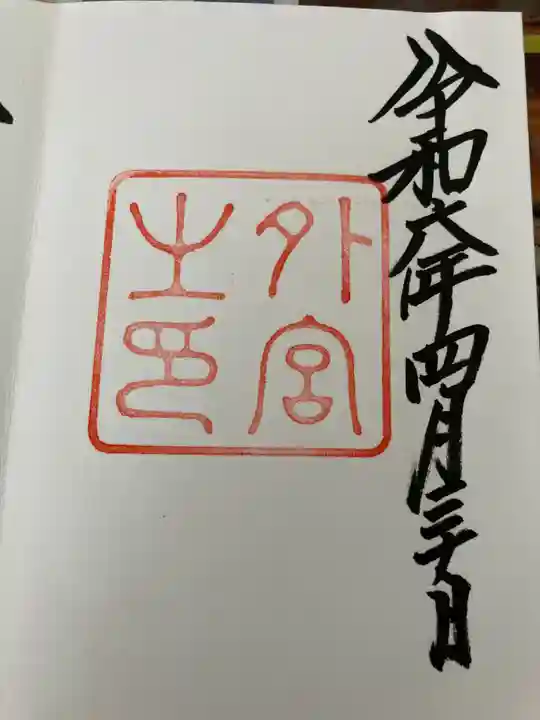 令和六年四月三十日
外宮
之印